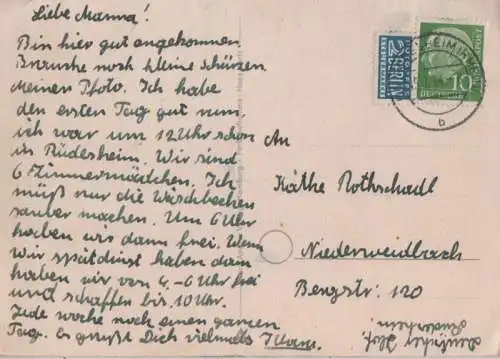 Liebe Mamma!
Bin hier gut angekommen.
Brauche noch kleine Schürzen
meinen Photo. Ich habe
den ersten Tag gut rum,
ich war um 12 Uhr schon
in Rüdesheim. Wir sind
6 Zimmermädchen. Ich
muß nur die Waschbecken
sauber machen. Um 6 Uhr
haben wir dann frei. Wenn
wir spätdinst haben dann
haben wir von 4.-6 Uhr frei
und schaffen bis 10 Uhr.
Jede woche noch einen ganzen
Tag. Es grußt Dich vielmals
An
Käthe Rothschadl
Niederweidbach
Bergstr. 120
NOTOPFER
2 BERLIN
10
DEUTSCHE
POST
b